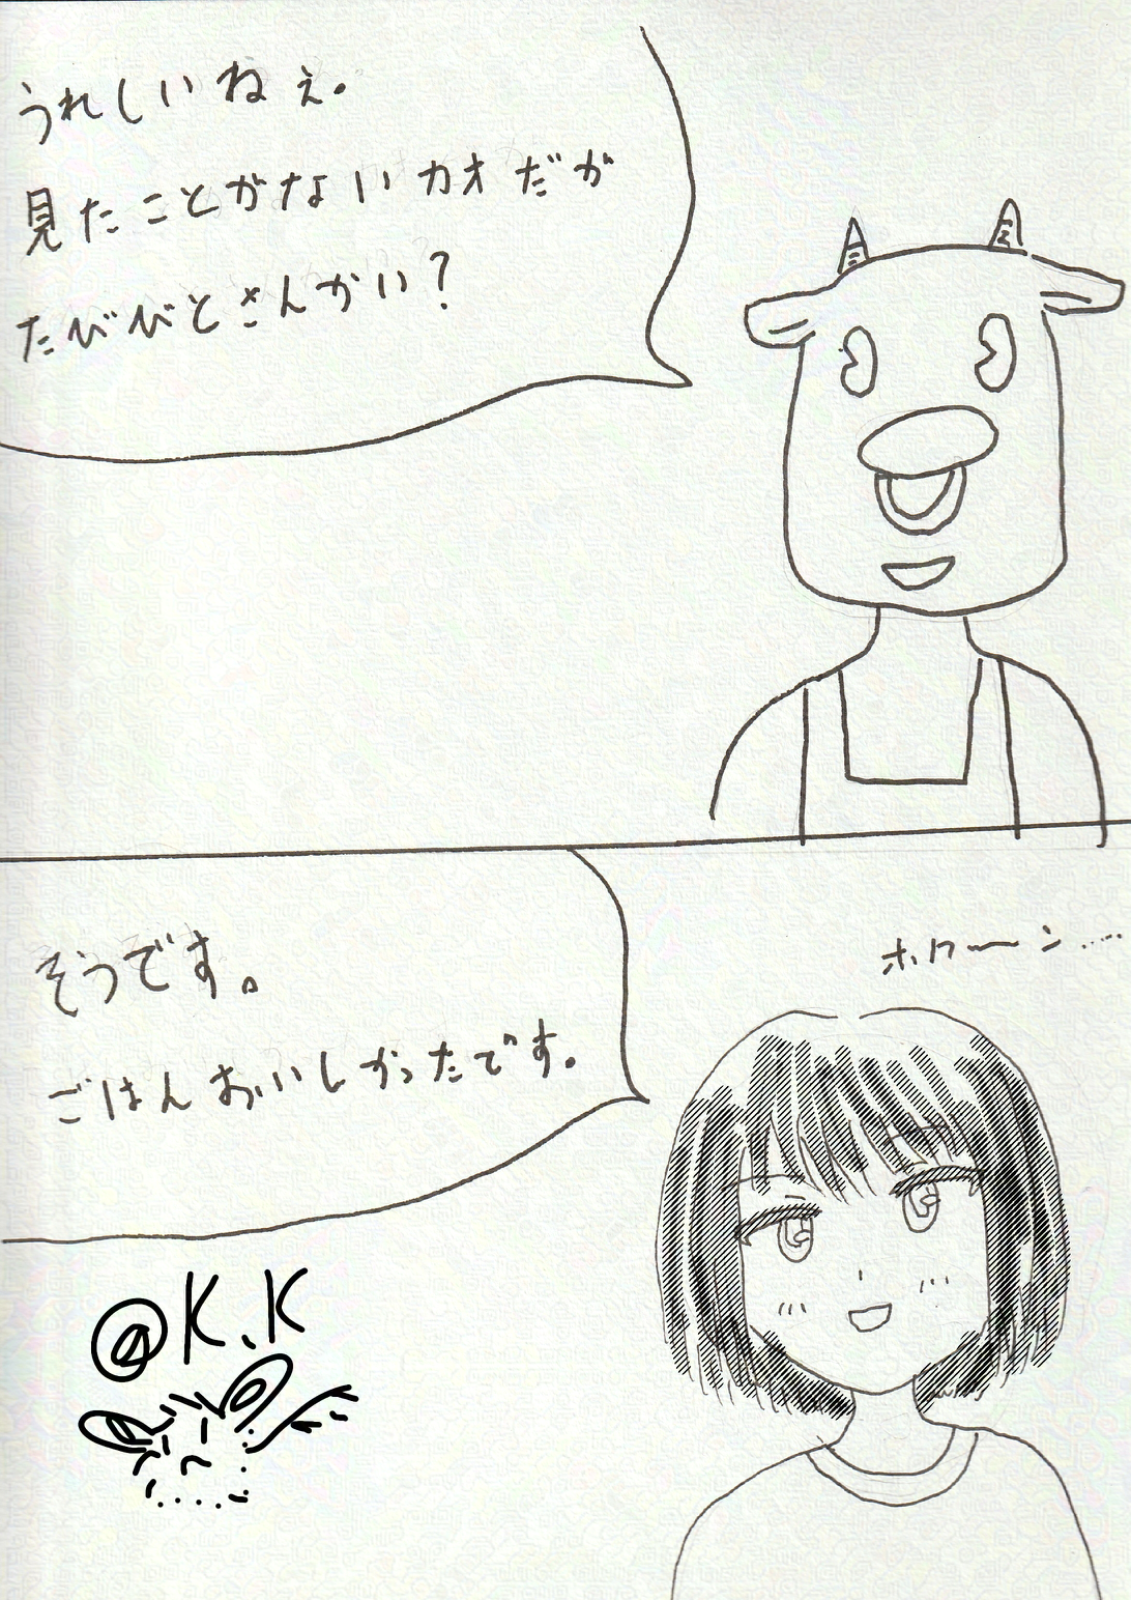 うれしいねぇ。
見たことがないカオだが
たびびとさんかい?
ホワーン……
そうです。
ごはんおいしかったです。
@K.K